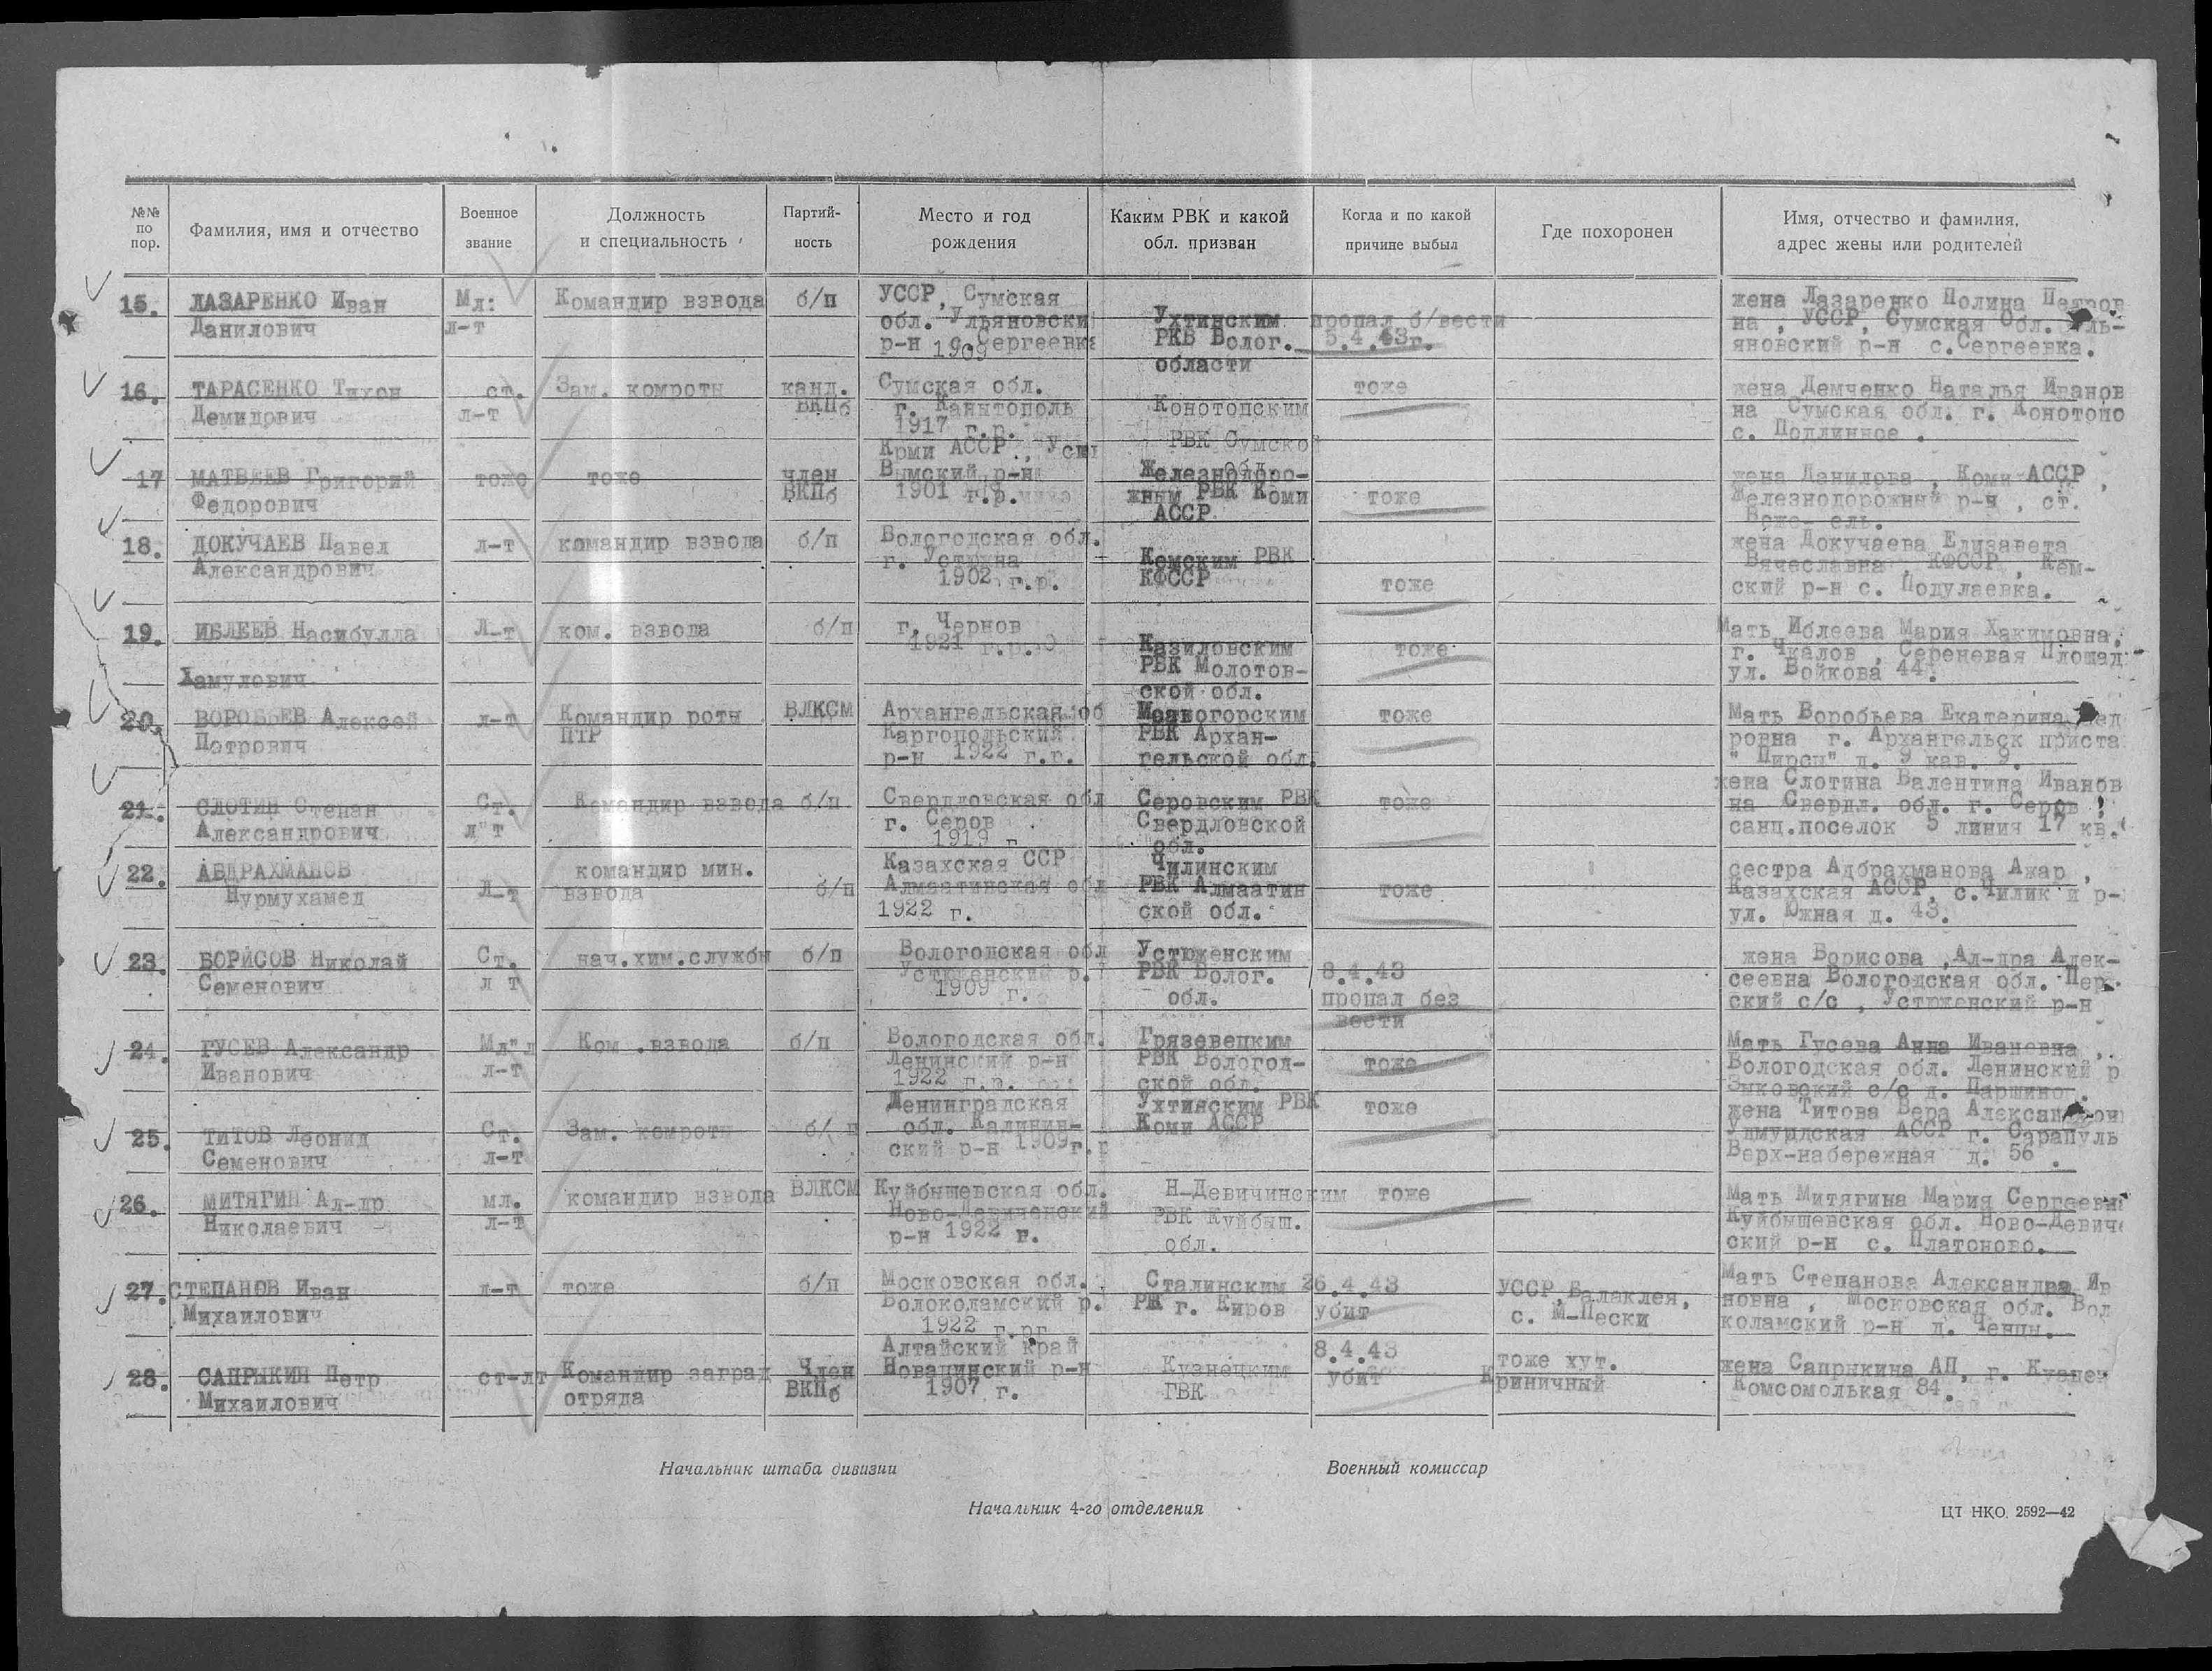 №№ по пор.
Фамилия, имя и отчество
Военное звание
Должность и специальность
Партий-ность
Место и год рождения
Каким РВК и какой обл. призван
Когда и по какой причине выбыл
Где похоронен
Имя, отчество и фамилия, адрес жены или родителей
15. ЛАЗАРЕНКО Иван Мл: Командир взвода б/п УССР, Сумская жена Лазаренко Полина Петров
Данилович л-т обл. Ульяновски Ухтинским пропал б/вести на , УССР, Сумская Обл. Уль-
р-н с.Сергеевка РКВ Волог. 5.4.43г. яновский р-н с.Сергеевка.
1909 области
16. ТАРАСЕНКО Тихон ст. Зам. комроты канд. Сумская обл. тоже жена Демченко Наталья Иванов
Демидович л-т ВКПб г. Канытополь Конотопским на Сумская обл. г. Конотопо
1917 г.р. РВК Сумско с. Подлинное .
обл.
17 МАТВЕЕВ Григорий тоже тоже член Крми АССР., Усть Железнодоро- жена Данилова , Коми АССР ,
Федорович ВКПб Вымский р-н жным РВК Коми тоже Железнодорожный р-н , ст.
1901 г.р. АССР
18. ДОКУЧАЕВ Павел л-т командир взвода б/п Вологодская обл. жена Докучаева Елизавета
Александрович г. Устюжна Кемским РВК Вячеславна , КФССР , Кем-
1902 г.р. КФССР тоже ский р-н с. Подулаевка.
19. ИБЛЕЕВ Насибулла Л-т ком. взвода б/п г. Чернов Мать Иблеева Мария Хакимовна,
1921 г.р. Казиловским тоже г. Чкалов , Сереневая Площад-
Хамулович РВК Молотов- ул. Войкова 44.
ской обл.
20. ВОРОБЬЕВ Алексей л-т Командир роты ВЛКСМ Архангельская об тоже Мать Воробьева Екатерина
Петрович ПТР Каргопольский РВК Архан- ровна г. Архангельск приста
р-н 1922 г.г. гельской обл. " Пирсы" д. 9 кав. 9.
21. СЛОТИН Степан Ст. Командир взвода б/п Свердловская обл Серовским РВК тоже жена Слотина Валентина Иванов
Александрович л"т г. Серов Свердловской на Свердл. обл. г. Серов ,
1919 г обл. санц.поселок 5 линия 17 кв.
22. АБДРАХМАНОВ командир мин. Казахская ССР Чилинским сестра Адбрахманова Ажар ,
Нурмухамед Л-т взвода б/п Алмаатинская обл РВК Алмаатин тоже Казахская АССР, с.Чилик й р-
1922 г. ской обл. ул. Южная д. 43.
23. БОРИСОВ Николай Ст. нач.хим.службы б/п Вологодская обл Устюженским жена Борисова ,Ал-дра Алек-
Семенович л т Устюженский р. РВК Волог. 8.4.43 сеевна Вологодская обл. Пер.
1909 г. обл. пропал без вести ский с/с , Устюженский р-н
24. ГУСЕВ Александр Мл"л Ком .взвода б/п Вологодская обл. Грязевецким Мать Гусева Анна Ивановна ,
Иванович л-т Ленинский р-н РВК Вологод- тоже Вологодская обл. Ленинский р
1922 г.р. ской обл. Зыковский с/с д. Паршино .
25. ТИТОВ Леонид Ст. Зам. комроты б/ п Ленинградская Ухтинским РВК тоже жена Титова Вера
Семенович л-т обл. Калинин- Коми АССР Удмурдская АССР г. Сарапуль
ский р-н 1909г.р Верх-набережная д. 56 .
26. МИТЯГИН Ал-др мл. командир взвода ВЛКСМ Куйбышевская обл. Н-Девичинским тоже Мать Митягина Мария Сергеевна
Николаевич л-т Ново-Девиченский РВК Куйбыш. Куйбышевская обл. Ново-Девиче
р-н 1922 г. обл. ский р-н с. Платоново.
27. СТЕПАНОВ Иван л-т тоже б/п Московская обл. Сталинским 26.4.43 УССР,Балаклея, Мать Степанова Александра Ив
Михаилович Волоколамский р. РК г. Киров убит с. М-Пески новна , Московская обл. Вол
1922 г.рг коламский р-н д. Ченцы.
28. САПРЫКИН Петр ст-лт Командир заград Член Алтайский край Кузнецким 8.4.43 тоже хут. жена Сапрыкина АП, г. Кузнец
Михаилович отряда ВКПб р-н ГВК убит Криничный Комсомолькая 84.
1907 г.
Начальник штаба дивизии
Военный комиссар
Начальник 4-го отделения
ЦТ НКО. 2592—42